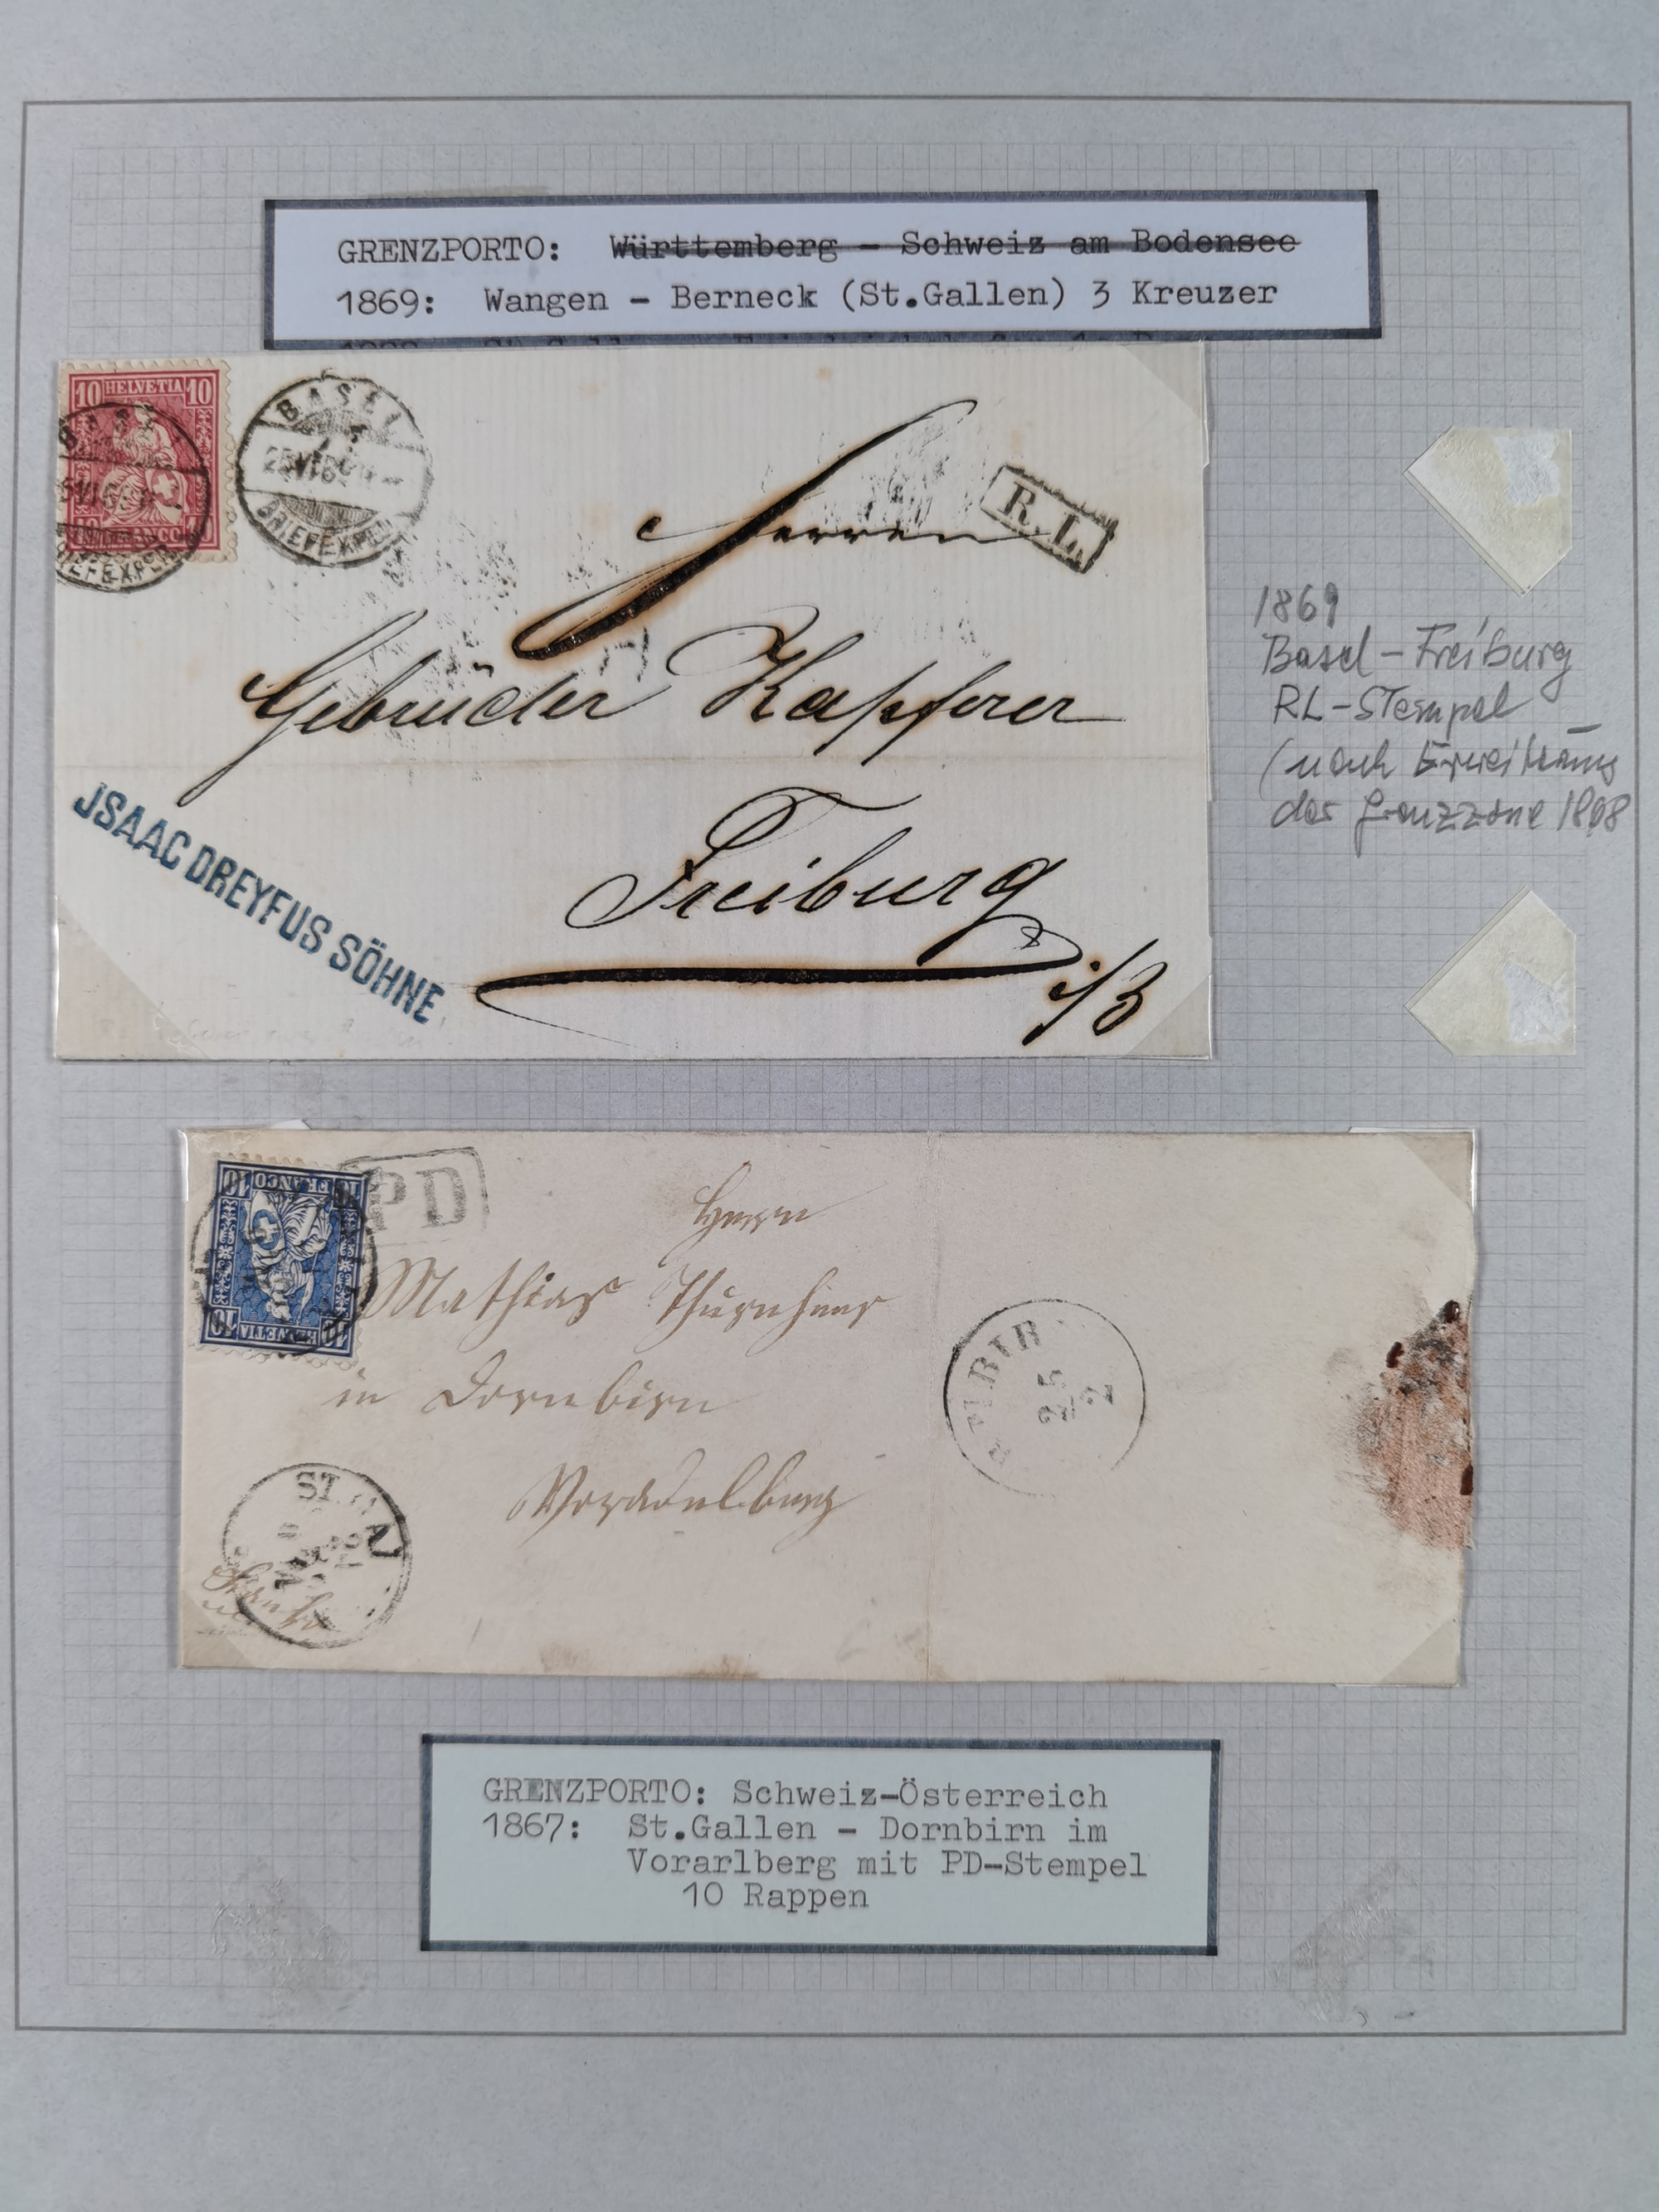 GRENZPORTO: Württemberg - Schweiz am Bodensee
1869: Wangen - Berneck (St.Gallen) 3 Kreuzer
10 HELVETIA 10
BASEL
BRIEFEXPED
Herren
R.L.
Gebrüder Kapferer
Freiburg
i/B
JSAAC DREYFUS SÖHNE
1869
Basel - Freiburg
RL-Stempel
(nach
der Grenzzone 1868
10 FRANCO 10
10 HELVETIA 10
PD
Herrn
Mathias
in Dornbirn
Voradelberg
25
2
ST. GA
Franko
GRENZPORTO: Schweiz-Österreich
1867: St.Gallen - Dornbirn im
Vorarlberg mit PD-Stempel
10 Rappen